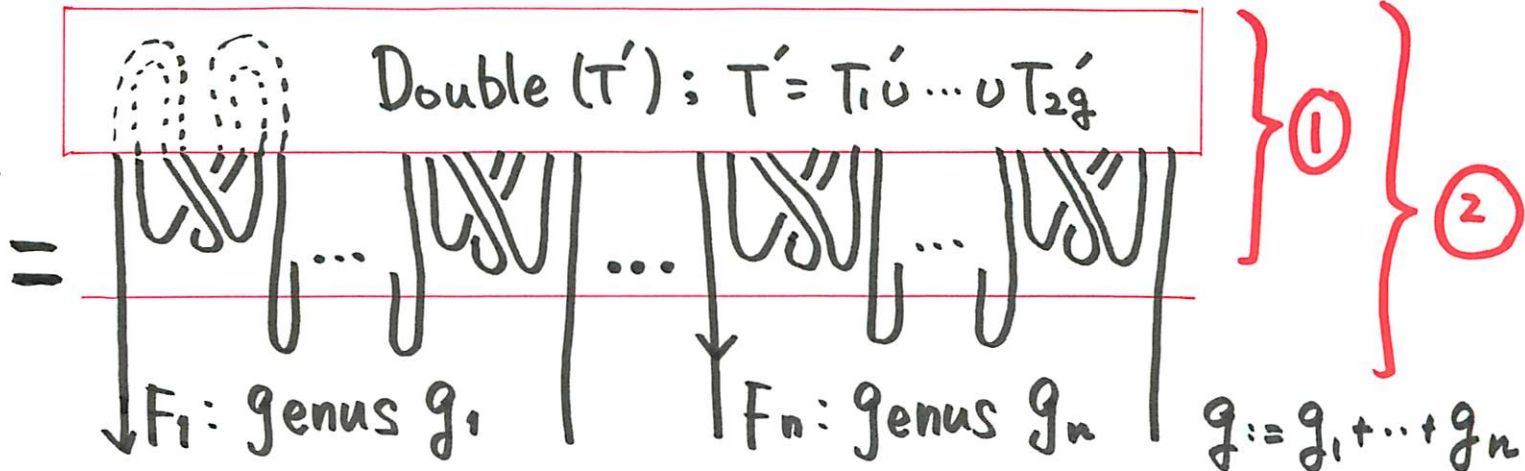 Double (T'); T' = T₁' ∪ ... ∪ T₂g'
①
②
=
...
...
...
F₁: genus g₁
Fn: genus gn
g := g₁ + ... + gn